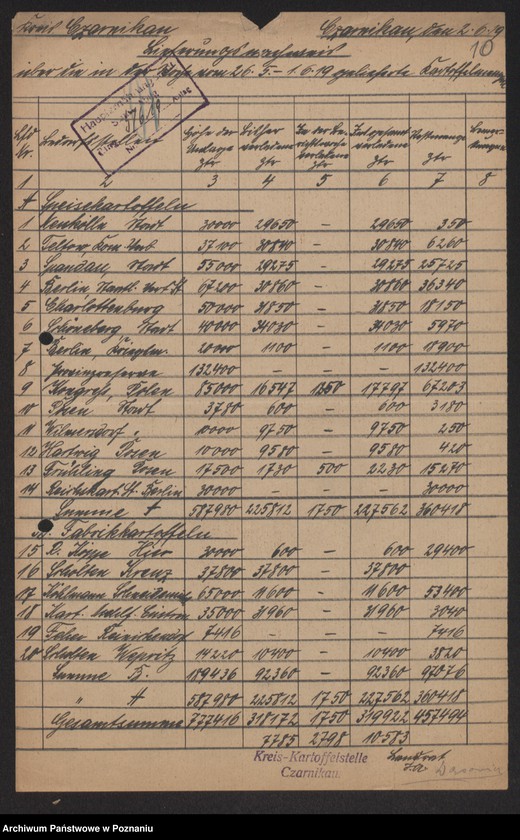 Kreis Czarnikau Czarnikau, den 2.6.19
10
Lieferungsnachweis
über die in der Woche vom 26.5.-1.6.19 gelieferte Kartoffelmenge
Lfd Nr. Bedarfsstellen Höhe der Umlage Ztr Bisher verladene Ztr In der Ztr Insgesamt verladen Ztr Restmenge Ztr
1 2 3 4 5 6 7 8
A Speisekartoffeln
1 Neukölln Stadt 30000 29650 - 29650 350
2 Teltow, Kom. Verb 37100 30840 - 30840 6260
3 Spandau, Stadt 55000 29275 - 29275 25725
4 Berlin 67200 30860 - 30860 36340
5 Charlottenburg 50000 31850 - 31850 18150
6 Schöneberg Stadt 40000 34030 - 34030 5970
7 Berlin, 20000 1100 - 1100 18900
8 Provinzreserve 132400 - - - 132400
9 Kongreß, Polen 85000 16547 1250 17797 67203
10 Posen Stadt 3780 600 - 600 3180
11 Wilmersdorf " 10000 9750 - 9750 250
12 Hartwig Posen 10000 9580 - 9580 420
13 Posen 17500 1730 500 2230 15270
14 Reichskart. St. Berlin 30000 - - - 30000
Summe A 587980 225812 1750 227562 360418
B. Fabrikkartoffeln
15 Hier 30000 600 - 600 29400
16 Scholten Kreuz 37800 37800 - 37800
17 65000 11600 - 11600 53400
18 35000 31960 - 31960 3040
19 7416 - - - 7416
20 Scholten Wepritz 14220 10400 - 10400 3820
Summe B. 189436 92360 - 92360 97076
" A 587980 225812 1750 227562 360418
Gesamtsumme 777416 318172 1750 319922 457494
7785 2798 10583
Kreis-Kartoffelstelle
Czarnikau.
Landrat
Archiwum Państwowe w Poznaniu